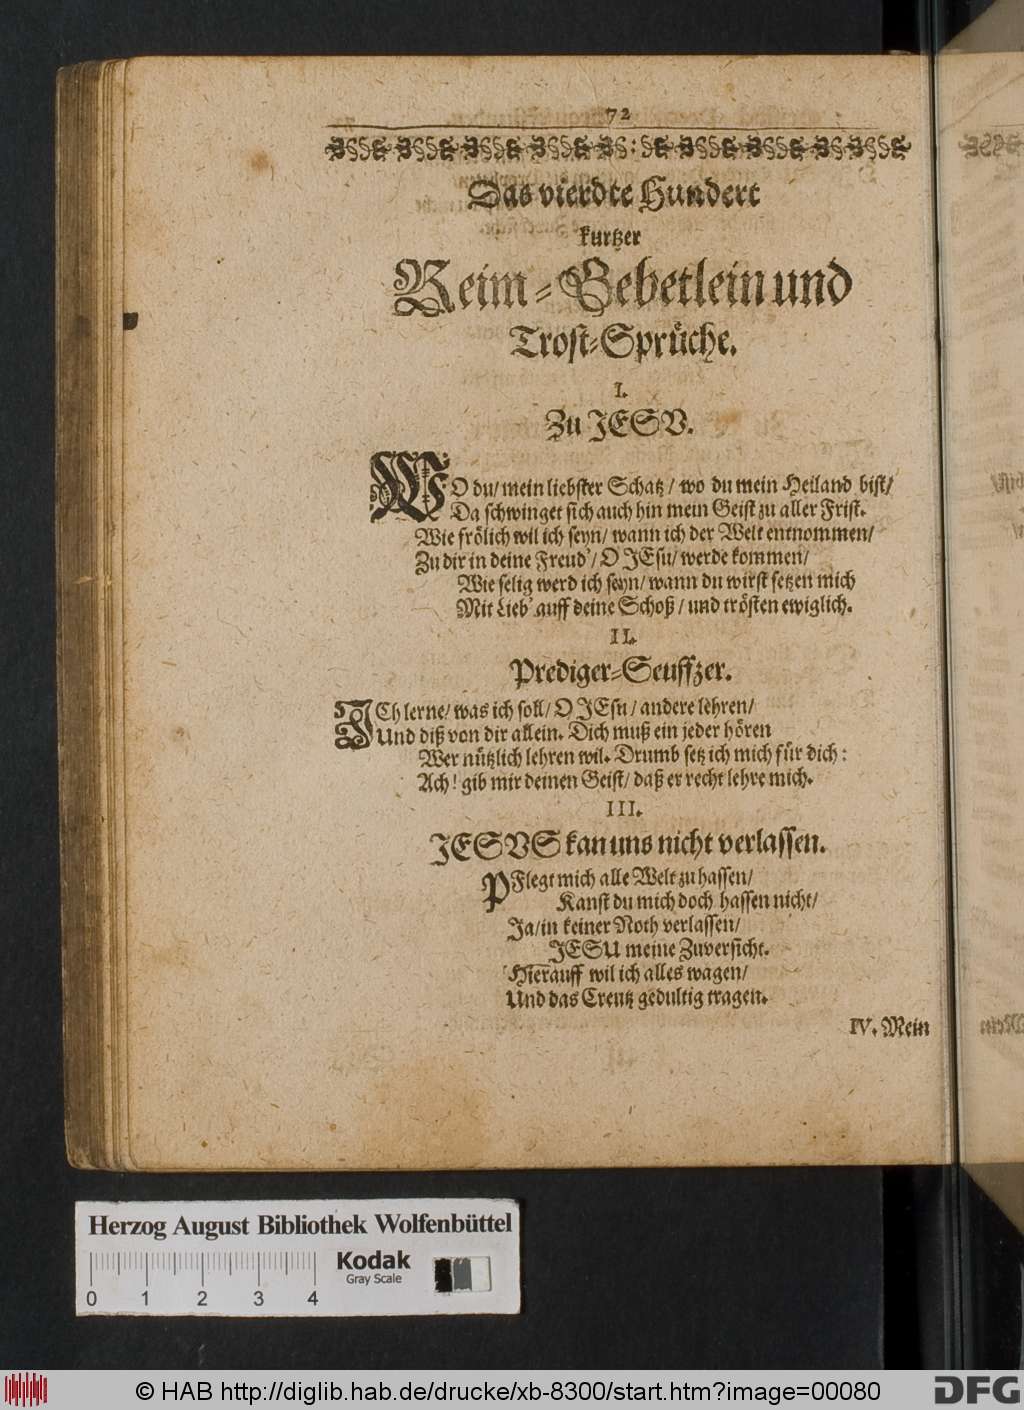 72
Das vierdte Hundert
kurtzer
Reim-Gebetlein und
Trost-Sprüche.
I.
Zu JESV.
WO du/ mein liebster Schatz/ wo du mein Heiland bist/
Da schwinget sich auch hin mein Geist zu aller Frist.
Wie frölich wil ich seyn/ wann ich der Welt entnommen/
Zu dir in deine Freud'/ O JEsu/ werde kommen/
Wie selig werd ich seyn/ wann du wirst setzen mich
Mit Lieb' auff deine Schoß/ und trösten ewiglich.
II.
Prediger-Seuffzer.
ICh lerne/ was ich soll/ O JEsu/ andere lehren/
Und diß von dir allein. Dich muß ein jeder hören
Wer nützlich lehren wil. Drumb setz ich mich für dich:
Ach! gib mir deinen Geist/ daß er recht lehre mich.
III.
JESVS kan uns nicht verlassen.
PFlegt mich alle Welt zu hassen/
Kanst du mich doch hassen nicht/
Ja/ in keiner Noth verlassen/
JESU meine Zuversicht.
Hierauff wil ich alles wagen/
Und das Creutz gedultig tragen.
IV. Mein
Herzog August Bibliothek Wolfenbüttel
Kodak
Gray Scale
0 1 2 3 4
© HAB http://diglib.hab.de/drucke/xb-8300/start.htm?image=00080
DFG